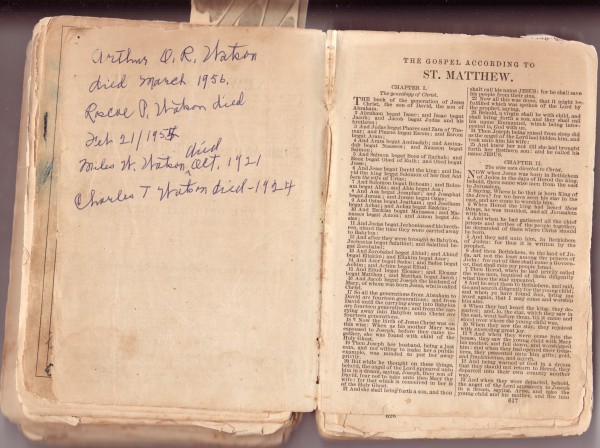 Arthur O. R. Watson
died March 1956.
Roscoe P. Watson died
Feb 21/
died
Miles W. Watson Oct. 1921
Charles T Watson died-1924
THE GOSPEL ACCORDING TO
ST. MATTHEW.
CHAPTER I.
The genealogy of Christ.
THE book of the generation of Jesus
Christ, the son of David, the son of
Abraham.
2 Abraham begat Isaac; and Isaac begat
Jacob; and Jacob begat Judas and his
brethren;
3 And Judas begat Phares and Zara of Tha-
mar; and Phares begat Esrom; and Esrom
begat Aram;
4 And Aram begat Aminadab; and Amina-
dab begat Naasson; and Naasson begat
Salmon;
5 And Salmon begat Booz of Rachab; and
Booz begat Obed of Ruth; and Obed begat
Jesse;
6 And Jesse begat David the king; and Da-
vid the king begat Solomon of her that had
been the wife of Urias;
7 And Solomon begat Roboam; and Robo-
am begat Abia; and Abia begat Asa;
8 And Asa begat Josaphat; and Josaphat
begat Joram; and Joram begat Ozias;
9 And Ozias begat Joatham; and Joatham
begat Achaz; and Achaz begat Ezekias;
10 And Ezekias begat Manasses; and Ma-
nasses begat Amon; and Amon begat Jo-
sias;
11 And Josias begat Jechonias and his breth-
ren, about the time they were carried away
to Babylon:
12 And after they were brought to Babylon,
Jechonias begat Salathiel; and Salathiel be-
gat Zorobabel;
13 And Zorobabel begat Abiud; and Abiud
begat Eliakim; and Eliakim begat Azor;
14 And Azor begat Sadoc; and Sadoc begat
Achim; and Achim begat Eliud;
15 And Eliud begat Eleazar; and Eleazar
begat Matthan; and Matthan begat Jacob;
16 And Jacob begat Joseph the husband of
Mary, of whom was born Jesus, who is called
Christ.
17 So all the generations from Abraham to
David are fourteen generations; and from
David until the carrying away into Babylon
are fourteen generations; and from the car-
rying away into Babylon unto Christ are
fourteen generations.
18 Now the birth of Jesus Christ was on
this wise: When as his mother Mary was
espoused to Joseph, before they came to-
gether, she was found with child of the
Holy Ghost.
19 Then Joseph her husband, being a just
man, and not willing to make her a public
example, was minded to put her away
privily.
20 But while he thought on these things,
behold, the angel of the Lord appeared unto
him in a dream, saying, Joseph, thou son of
David, fear not to take unto thee Mary thy
wife: for that which is conceived in her is
of the Holy Ghost.
21 And she shall bring forth a son, and thou
shalt call his name JESUS: for he shall save
his people from their sins.
22 Now all this was done, that it might be
fulfilled which was spoken of the Lord by
the prophet, saying,
23 Behold, a virgin shall be with child, and
shall bring forth a son, and they shall call
his name Emmanuel, which being inter-
preted is, God with us.
24 Then Joseph being raised from sleep did
as the angel of the Lord had bidden him, and
took unto him his wife:
25 And knew her not till she had brought
forth her firstborn son: and he called his
name JESUS.
CHAPTER II.
The wise men directed to Christ.
NOW when Jesus was born in Bethlehem
of Judea in the days of Herod the king,
behold, there came wise men from the east
to Jerusalem,
2 Saying, Where is he that is born King of
the Jews? for we have seen his star in the
east, and are come to worship him.
3 When Herod the king had heard these
things, he was troubled, and all Jerusalem
with him.
4 And when he had gathered all the chief
priests and scribes of the people together,
he demanded of them where Christ should
be born.
5 And they said unto him, In Bethlehem
of Judea: for thus it is written by the
prophet,
6 And thou Bethlehem, in the land of Ju-
da, art not the least among the princes of
Juda: for out of thee shall come a Govern-
or, that shall rule my people Israel.
7 Then Herod, when he had privily called
the wise men, inquired of them diligently
what time the star appeared.
8 And he sent them to Bethlehem, and said,
Go and search diligently for the young child;
and when ye have found him, bring me
word again, that I may come and worship
him also.
9 When they had heard the king, they de-
parted; and, lo, the star, which they saw in
the east, went before them, till it came and
stood over where the young child was.
10 When they saw the star, they rejoiced
with exceeding great joy.
11 And when they were come into the
house, they saw the young child with Mary
his mother, and fell down, and worshipped
him: and when they had opened their treas-
ures, they presented unto him gifts; gold,
and frankincense, and myrrh.
12 And being warned of God in a dream
that they should not return to Herod, they
departed into their own country another
way.
13 And when they were departed, behold,
the angel of the Lord appeareth to Joseph
in a dream, saying, Arise, and take the
young child and his mother, and flee into
617